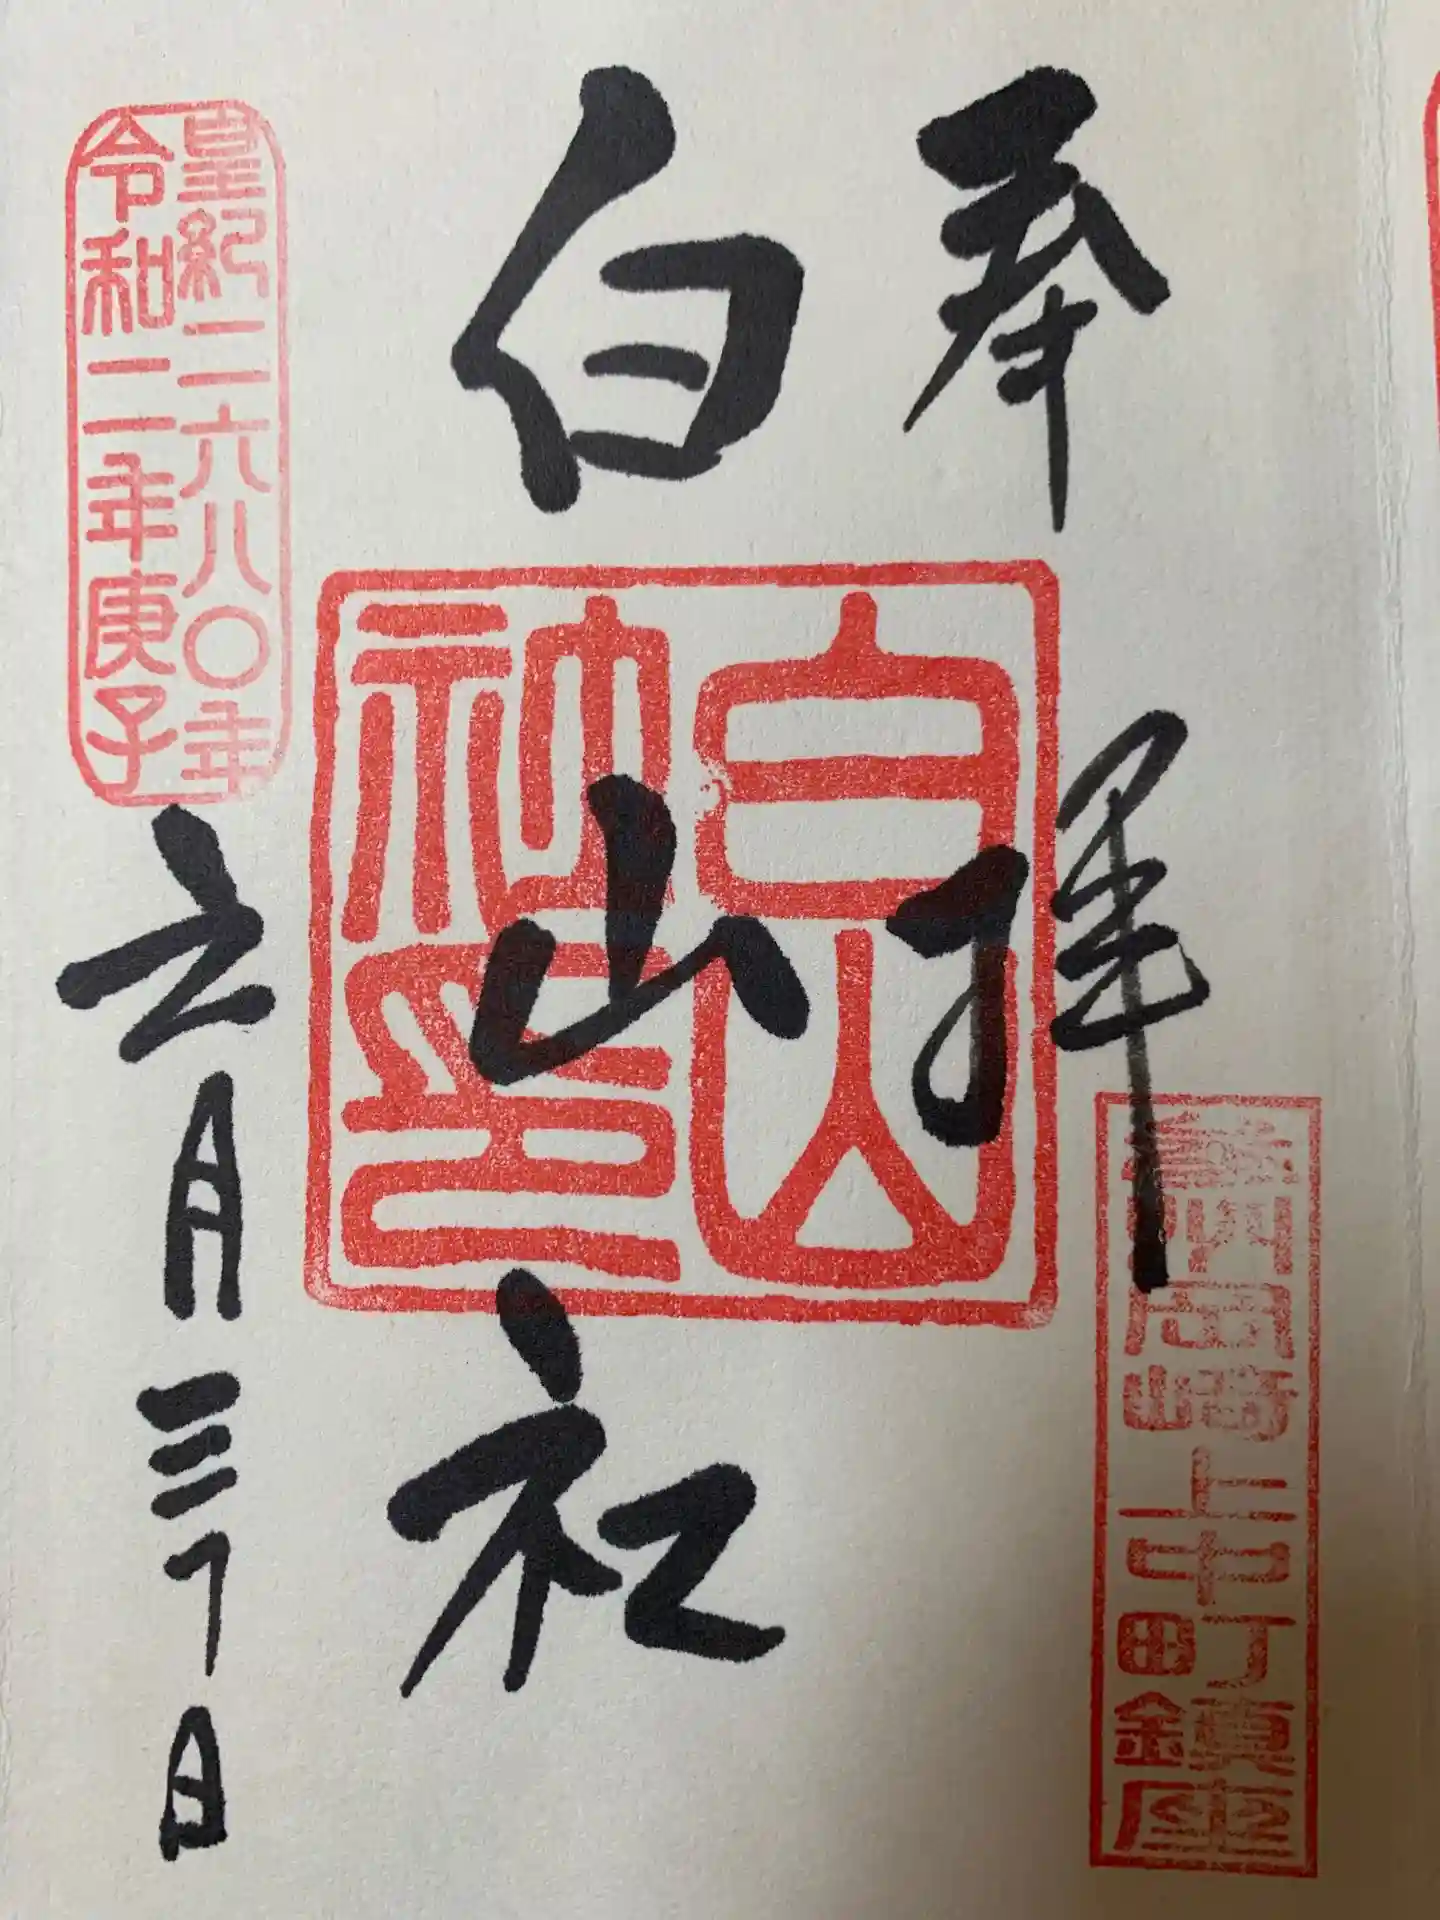 奉拝
岡崎上中町鎮座
白山社
白山
神印
皇紀二六八〇年
令和二年庚子
六月三十日